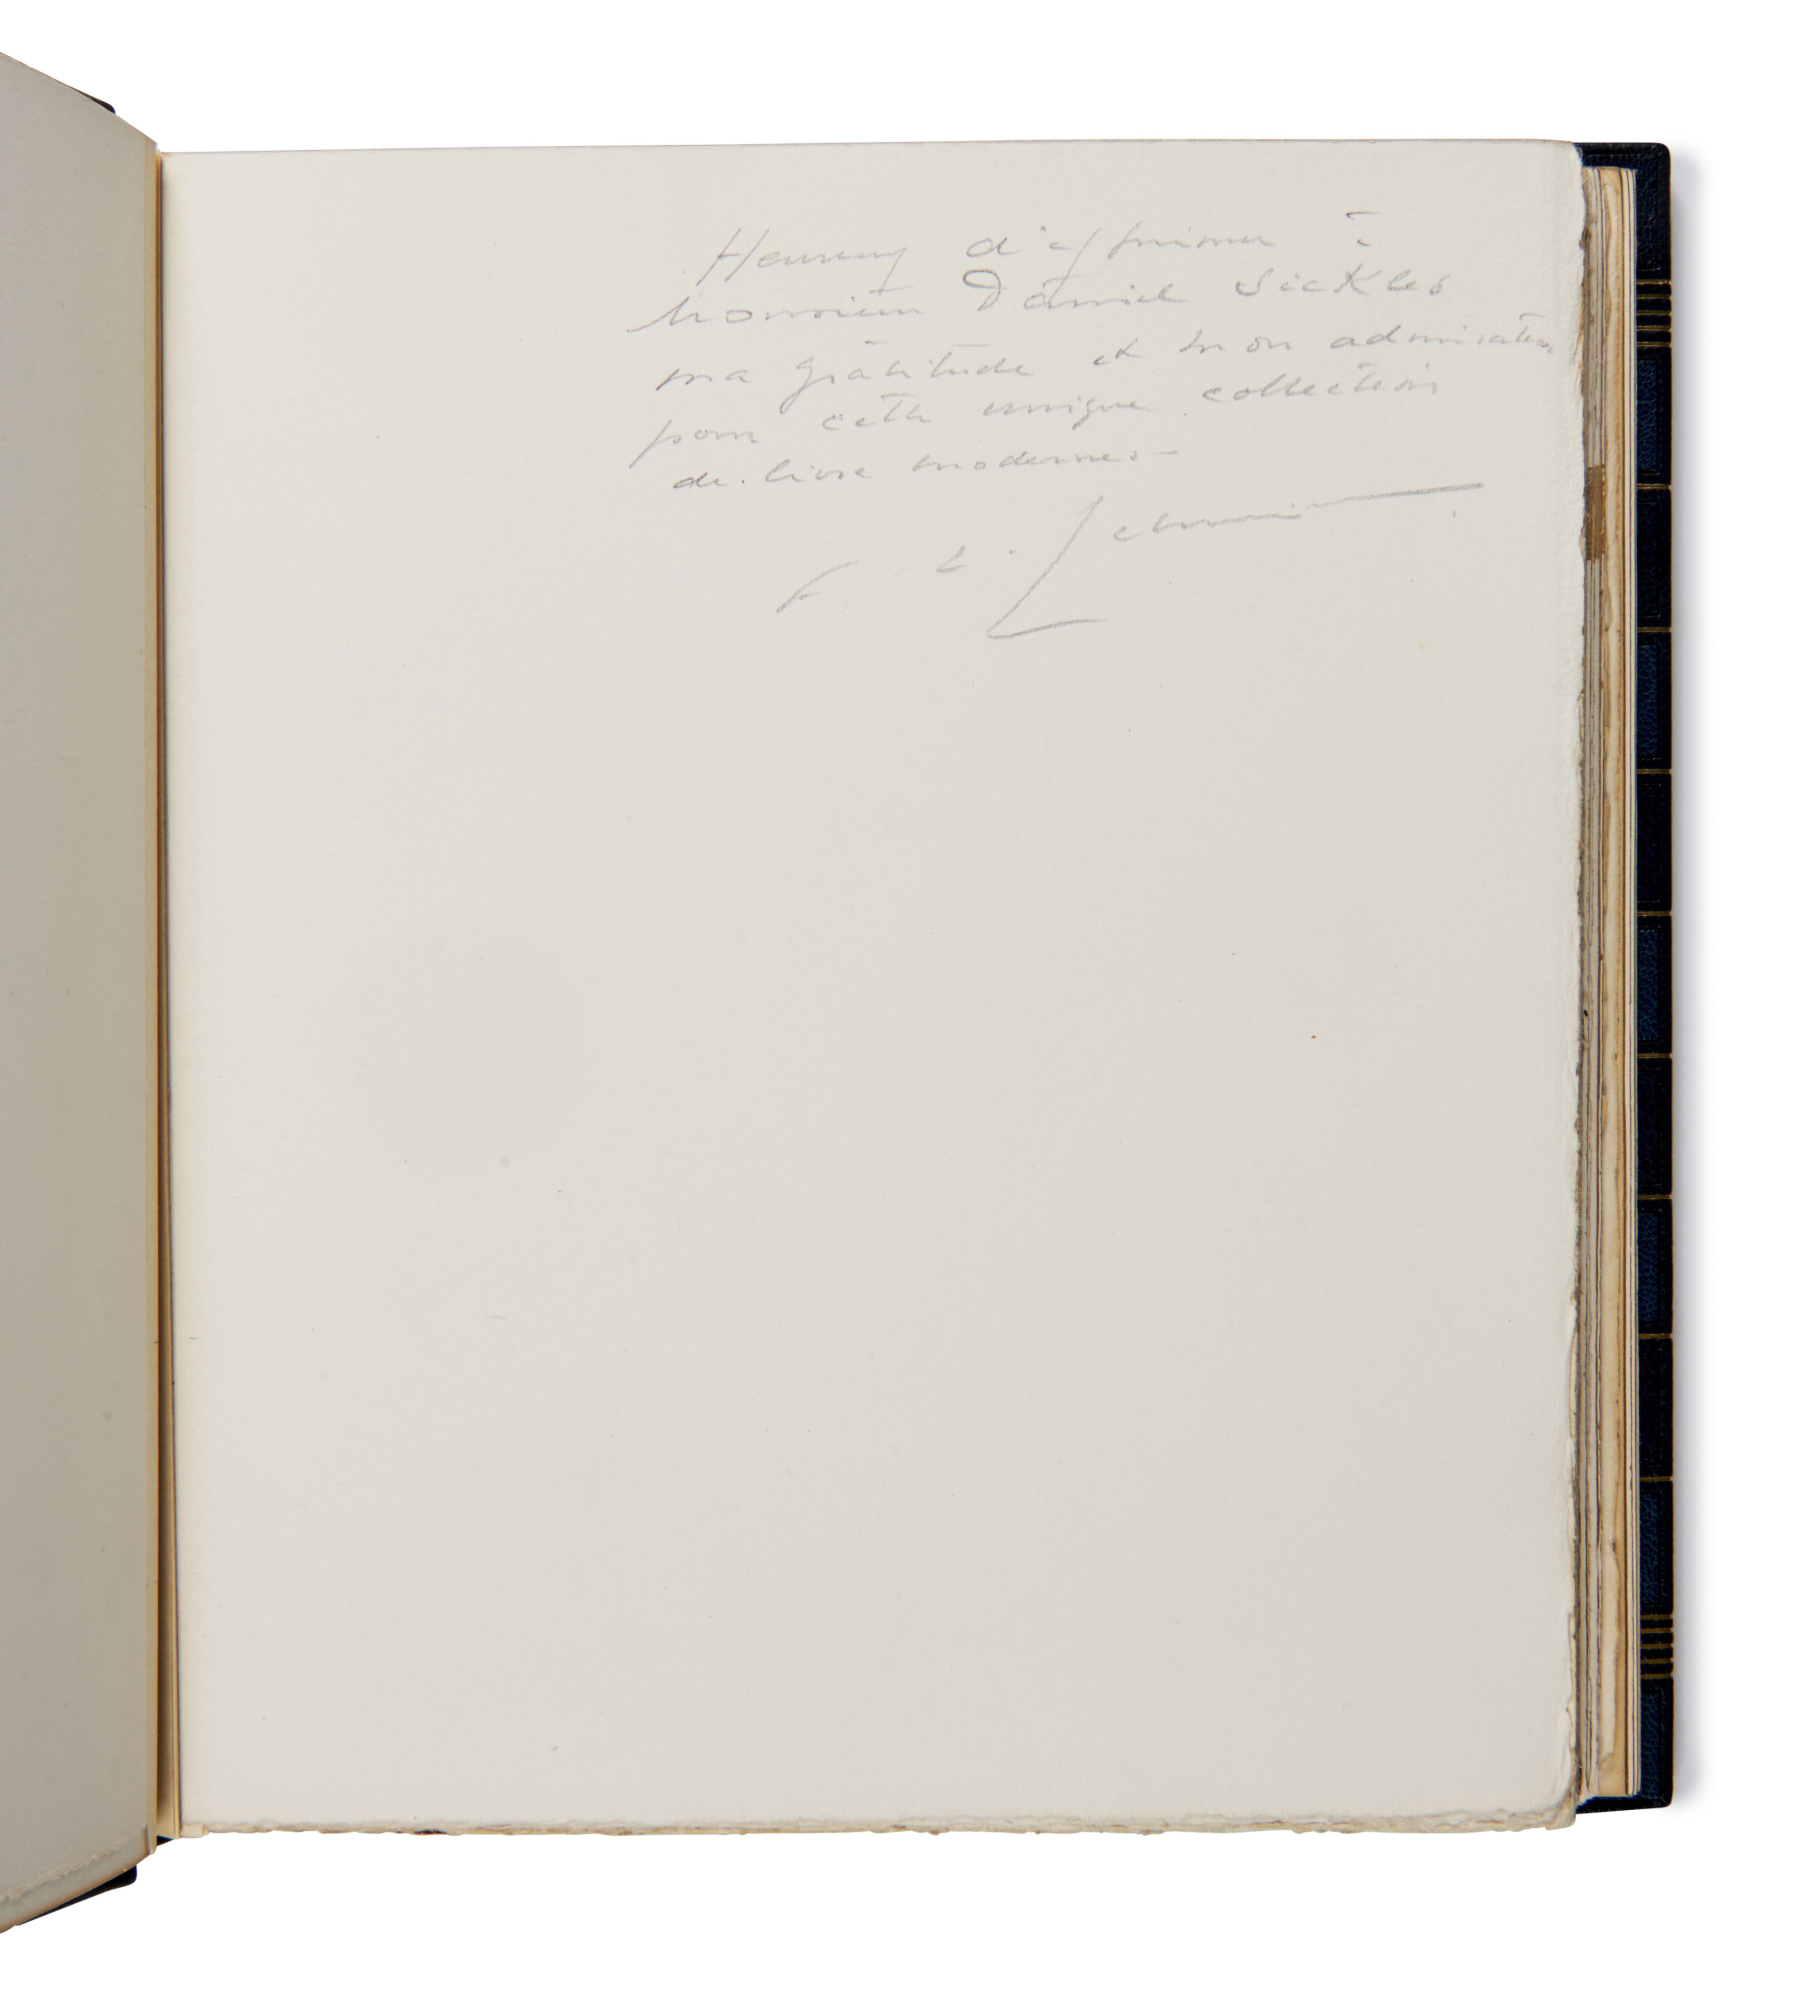 Heureux d'exprimer à
Monsieur Daniel Sickles
ma gratitude et mon admiration
pour cette unique collection
de livre modernes —
F. L. Schmied